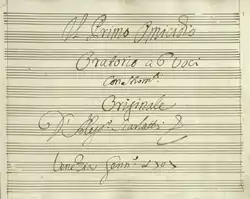 Il Primo Omicidio
Oratorio a 6 Voci
Con Strom.ti
Originale
D'Aless.o Scarlatti
Venezia Genn.o